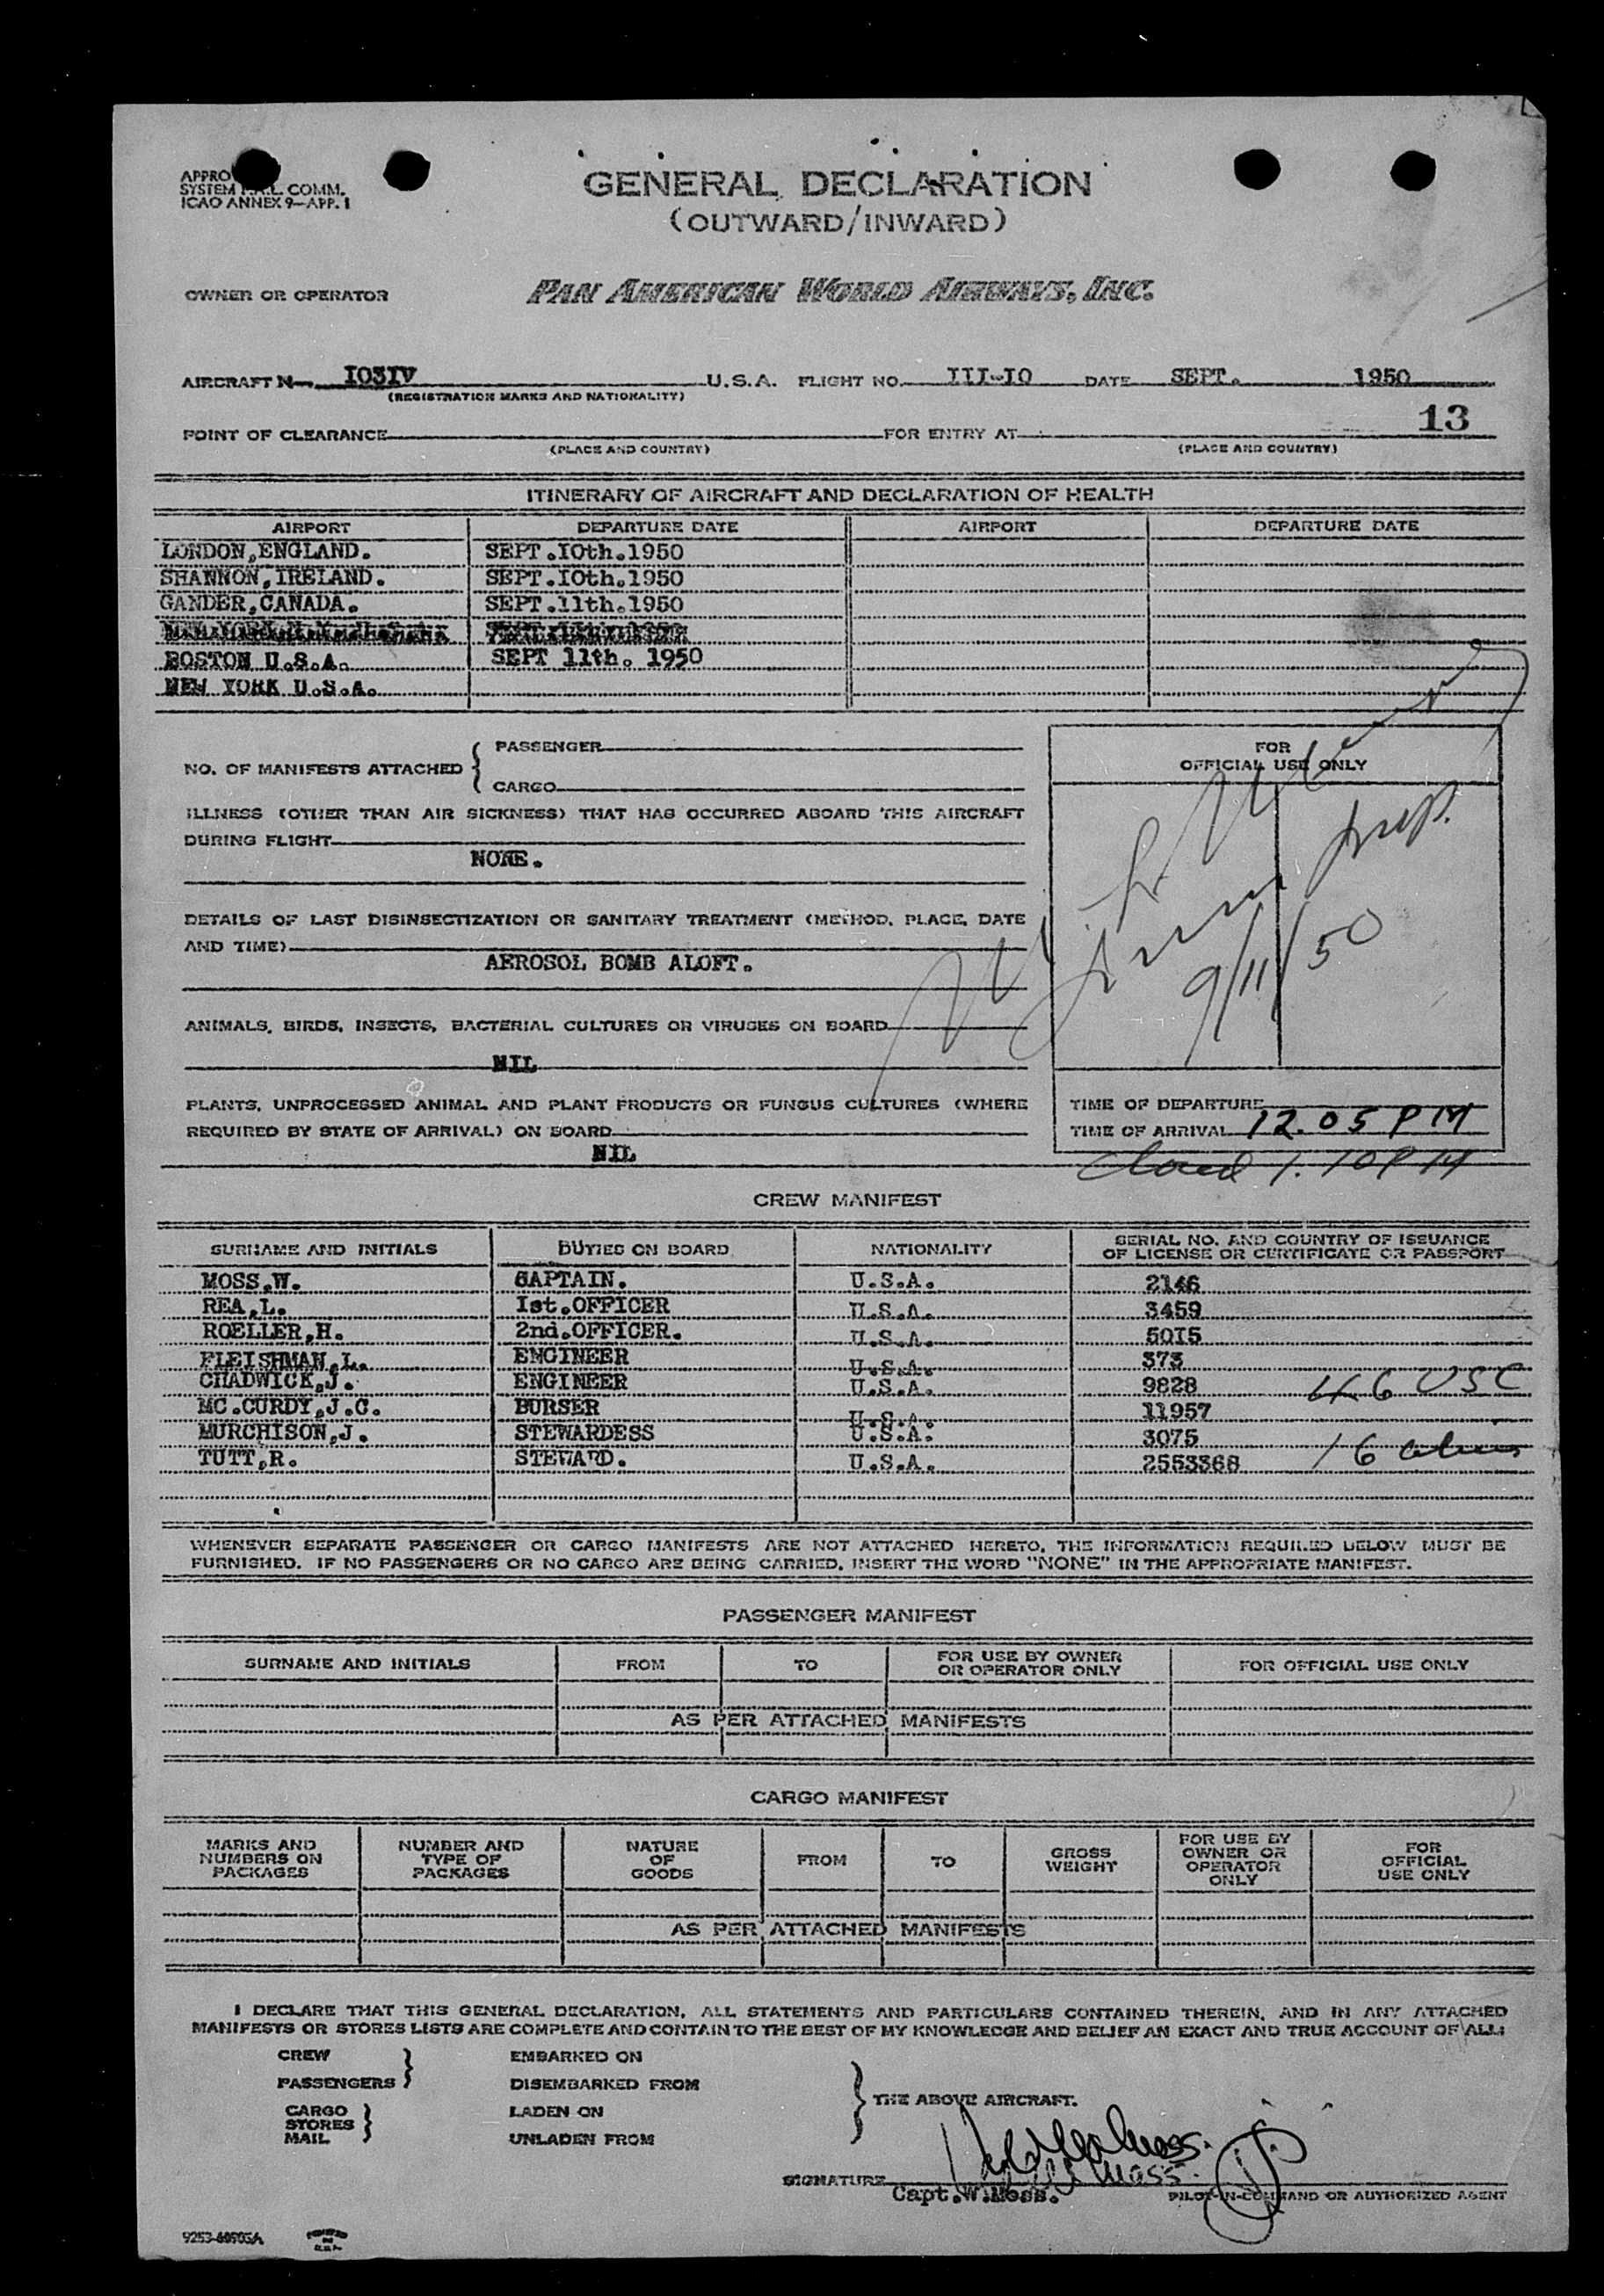 APPRO
SYSTEM F.A.L. COMM.
ICAO ANNEX 9—APP. 1
GENERAL DECLARATION
(OUTWARD/INWARD)
OWNER OR OPERATOR PAN AMERICAN WORLD AIRWAYS, INC.
AIRCRAFT N— I03IV U.S.A. FLIGHT NO. III-I0 DATE SEPT. 1950
(REGISTRATION MARKS AND NATIONALITY)
13
POINT OF CLEARANCE FOR ENTRY AT
(PLACE AND COUNTRY) (PLACE AND COUNTRY)
ITINERARY OF AIRCRAFT AND DECLARATION OF HEALTH
AIRPORT DEPARTURE DATE AIRPORT DEPARTURE DATE
LONDON,ENGLAND. SEPT.I0th.1950
SHANNON,IRELAND. SEPT.I0th.1950
GANDER,CANADA. SEPT.11th.1950
BOSTON U.S.A. SEPT 11th. 1950
NEW YORK U.S.A.
NO. OF MANIFESTS ATTACHED { PASSENGER
CARGO
FOR
OFFICIAL USE ONLY
ILLNESS (OTHER THAN AIR SICKNESS) THAT HAS OCCURRED ABOARD THIS AIRCRAFT
DURING FLIGHT
NONE.
DETAILS OF LAST DISINSECTIZATION OR SANITARY TREATMENT (METHOD, PLACE, DATE
AND TIME)
AEROSOL BOMB ALOFT.
9/11/50
ANIMALS, BIRDS, INSECTS, BACTERIAL CULTURES OR VIRUSES ON BOARD
NIL
PLANTS, UNPROCESSED ANIMAL AND PLANT PRODUCTS OR FUNGUS CULTURES (WHERE
REQUIRED BY STATE OF ARRIVAL) ON BOARD
NIL
TIME OF DEPARTURE
TIME OF ARRIVAL 12.05 PM
1.10 PM
CREW MANIFEST
SURNAME AND INITIALS DUTIES ON BOARD NATIONALITY SERIAL NO. AND COUNTRY OF ISSUANCE
OF LICENSE OR CERTIFICATE OR PASSPORT
MOSS,W. CAPTAIN. U.S.A. 2146
REA,L. Ist.OFFICER U.S.A. 3459
ROELLER,H. 2nd.OFFICER. U.S.A. 50I5
FLEISHMAN,L. ENGINEER U.S.A. 373
CHADWICK,J. ENGINEER U.S.A. 9828 46 USC
MC.CURDY,J.C. BURSER U.S.A. 11957
MURCHISON,J. STEWARDESS U.S.A. 3075
TUTT,R. STEWARD. U.S.A. 2553368 16 aliens
WHENEVER SEPARATE PASSENGER OR CARGO MANIFESTS ARE NOT ATTACHED HERETO, THE INFORMATION REQUIRED BELOW MUST BE
FURNISHED. IF NO PASSENGERS OR NO CARGO ARE BEING CARRIED, INSERT THE WORD "NONE" IN THE APPROPRIATE MANIFEST.
PASSENGER MANIFEST
SURNAME AND INITIALS FROM TO FOR USE BY OWNER
OR OPERATOR ONLY FOR OFFICIAL USE ONLY
AS PER ATTACHED MANIFESTS
CARGO MANIFEST
MARKS AND
NUMBERS ON
PACKAGES
NUMBER AND
TYPE OF
PACKAGES
NATURE
OF
GOODS
FROM
TO
GROSS
WEIGHT
FOR USE BY
OWNER OR
OPERATOR
ONLY
FOR
OFFICIAL
USE ONLY
AS PER ATTACHED MANIFESTS
I DECLARE THAT THIS GENERAL DECLARATION, ALL STATEMENTS AND PARTICULARS CONTAINED THEREIN, AND IN ANY ATTACHED
MANIFESTS OR STORES LISTS ARE COMPLETE AND CONTAIN TO THE BEST OF MY KNOWLEDGE AND BELIEF AN EXACT AND TRUE ACCOUNT OF ALL:
CREW EMBARKED ON
PASSENGERS } DISEMBARKED FROM
} THE ABOVE AIRCRAFT.
CARGO LADEN ON
STORES }
MAIL UNLADEN FROM
SIGNATURE
Capt.W.Moss. PILOT-IN-COMMAND OR AUTHORIZED AGENT
PRINTED
IN
U.S.A.